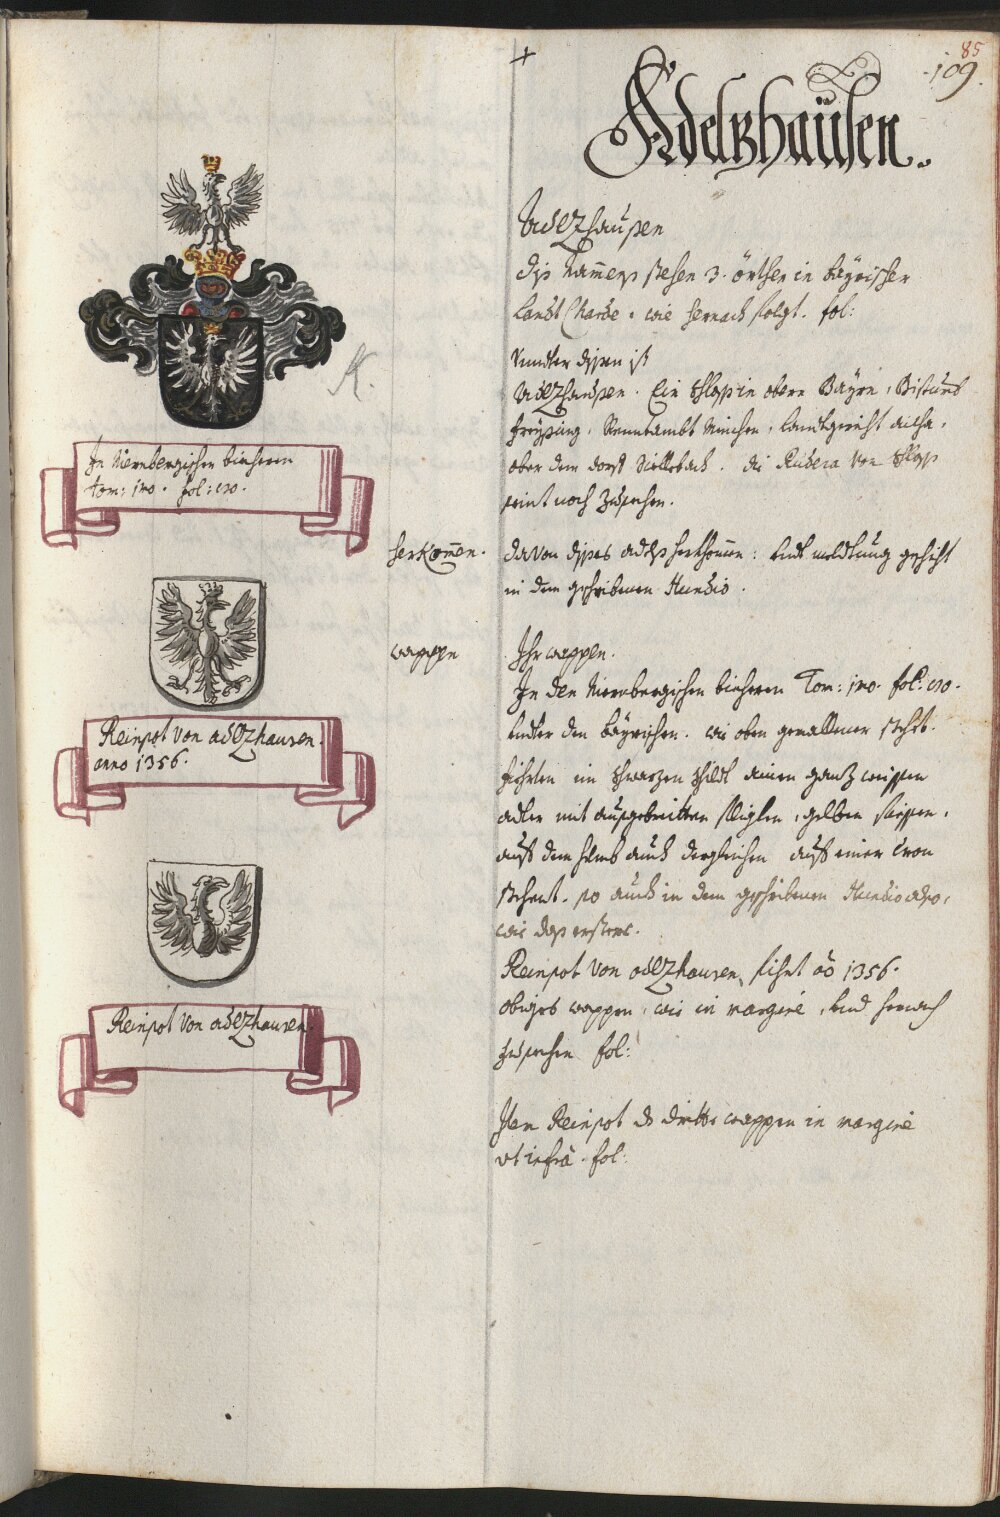 85
109.
Adeltzhausen.
Adeltzhausen
diss Nammens stehen 3. örther in bayrischer
Landt Charde. wie hernach folgt. fol:
Vundter dissen ist
Adeltzhausen. Ein schloss in obern Bayrn, Bistumb
Freysing, Renntambt München, Landtgericht aicha,
ober dem dorff. die Rudera von schloss
seint noch zusechen.
Herkom̄en.
davon dises adels herkhomen: undt meldtung geschicht
in dem geschribenen Hundio.
wappen
Ihr wappen.
In den Nürnbergischen biechern Tom: imo. fol:
undter den bayrischen. wie oben gemallener steht.
fiehrten im schwarzen schildt ainen gantz weissen
adler mit aussgebreitten fliglen, gelben fiessen.
auff dem helmb auch dergleichen auff einer Cron
stehent. so auch in dem geschribenen Hundio also,
wie dass erstere.
Reinpot von adeltzhausen, fihrt ao 1356.
obiges wappen, wie in margine, und hernach
zusechen fol:
Item Reinpot ds dritte wappen in margine
vt infra. fol:
In Nürnbergischen biechern
tom: imo. fol:
Reinpot von adeltzhausen.
anno 1356.
Reinpot von adeltzhausen.